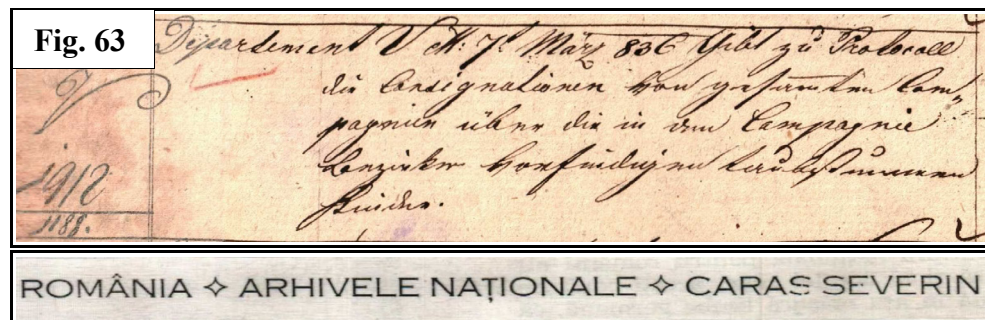 Fig. 63
Departement V dt. 7t. März 836 Gibt zu Protocoll
die Consignationen von gesamten Com„
pagnien über die in dem Compagnie
Bezirke vorfindigen taubstummen
Kinder.
V
1912
1188.
ROMÂNIA ✧ ARHIVELE NAȚIONALE ✧ CARAS SEVERIN